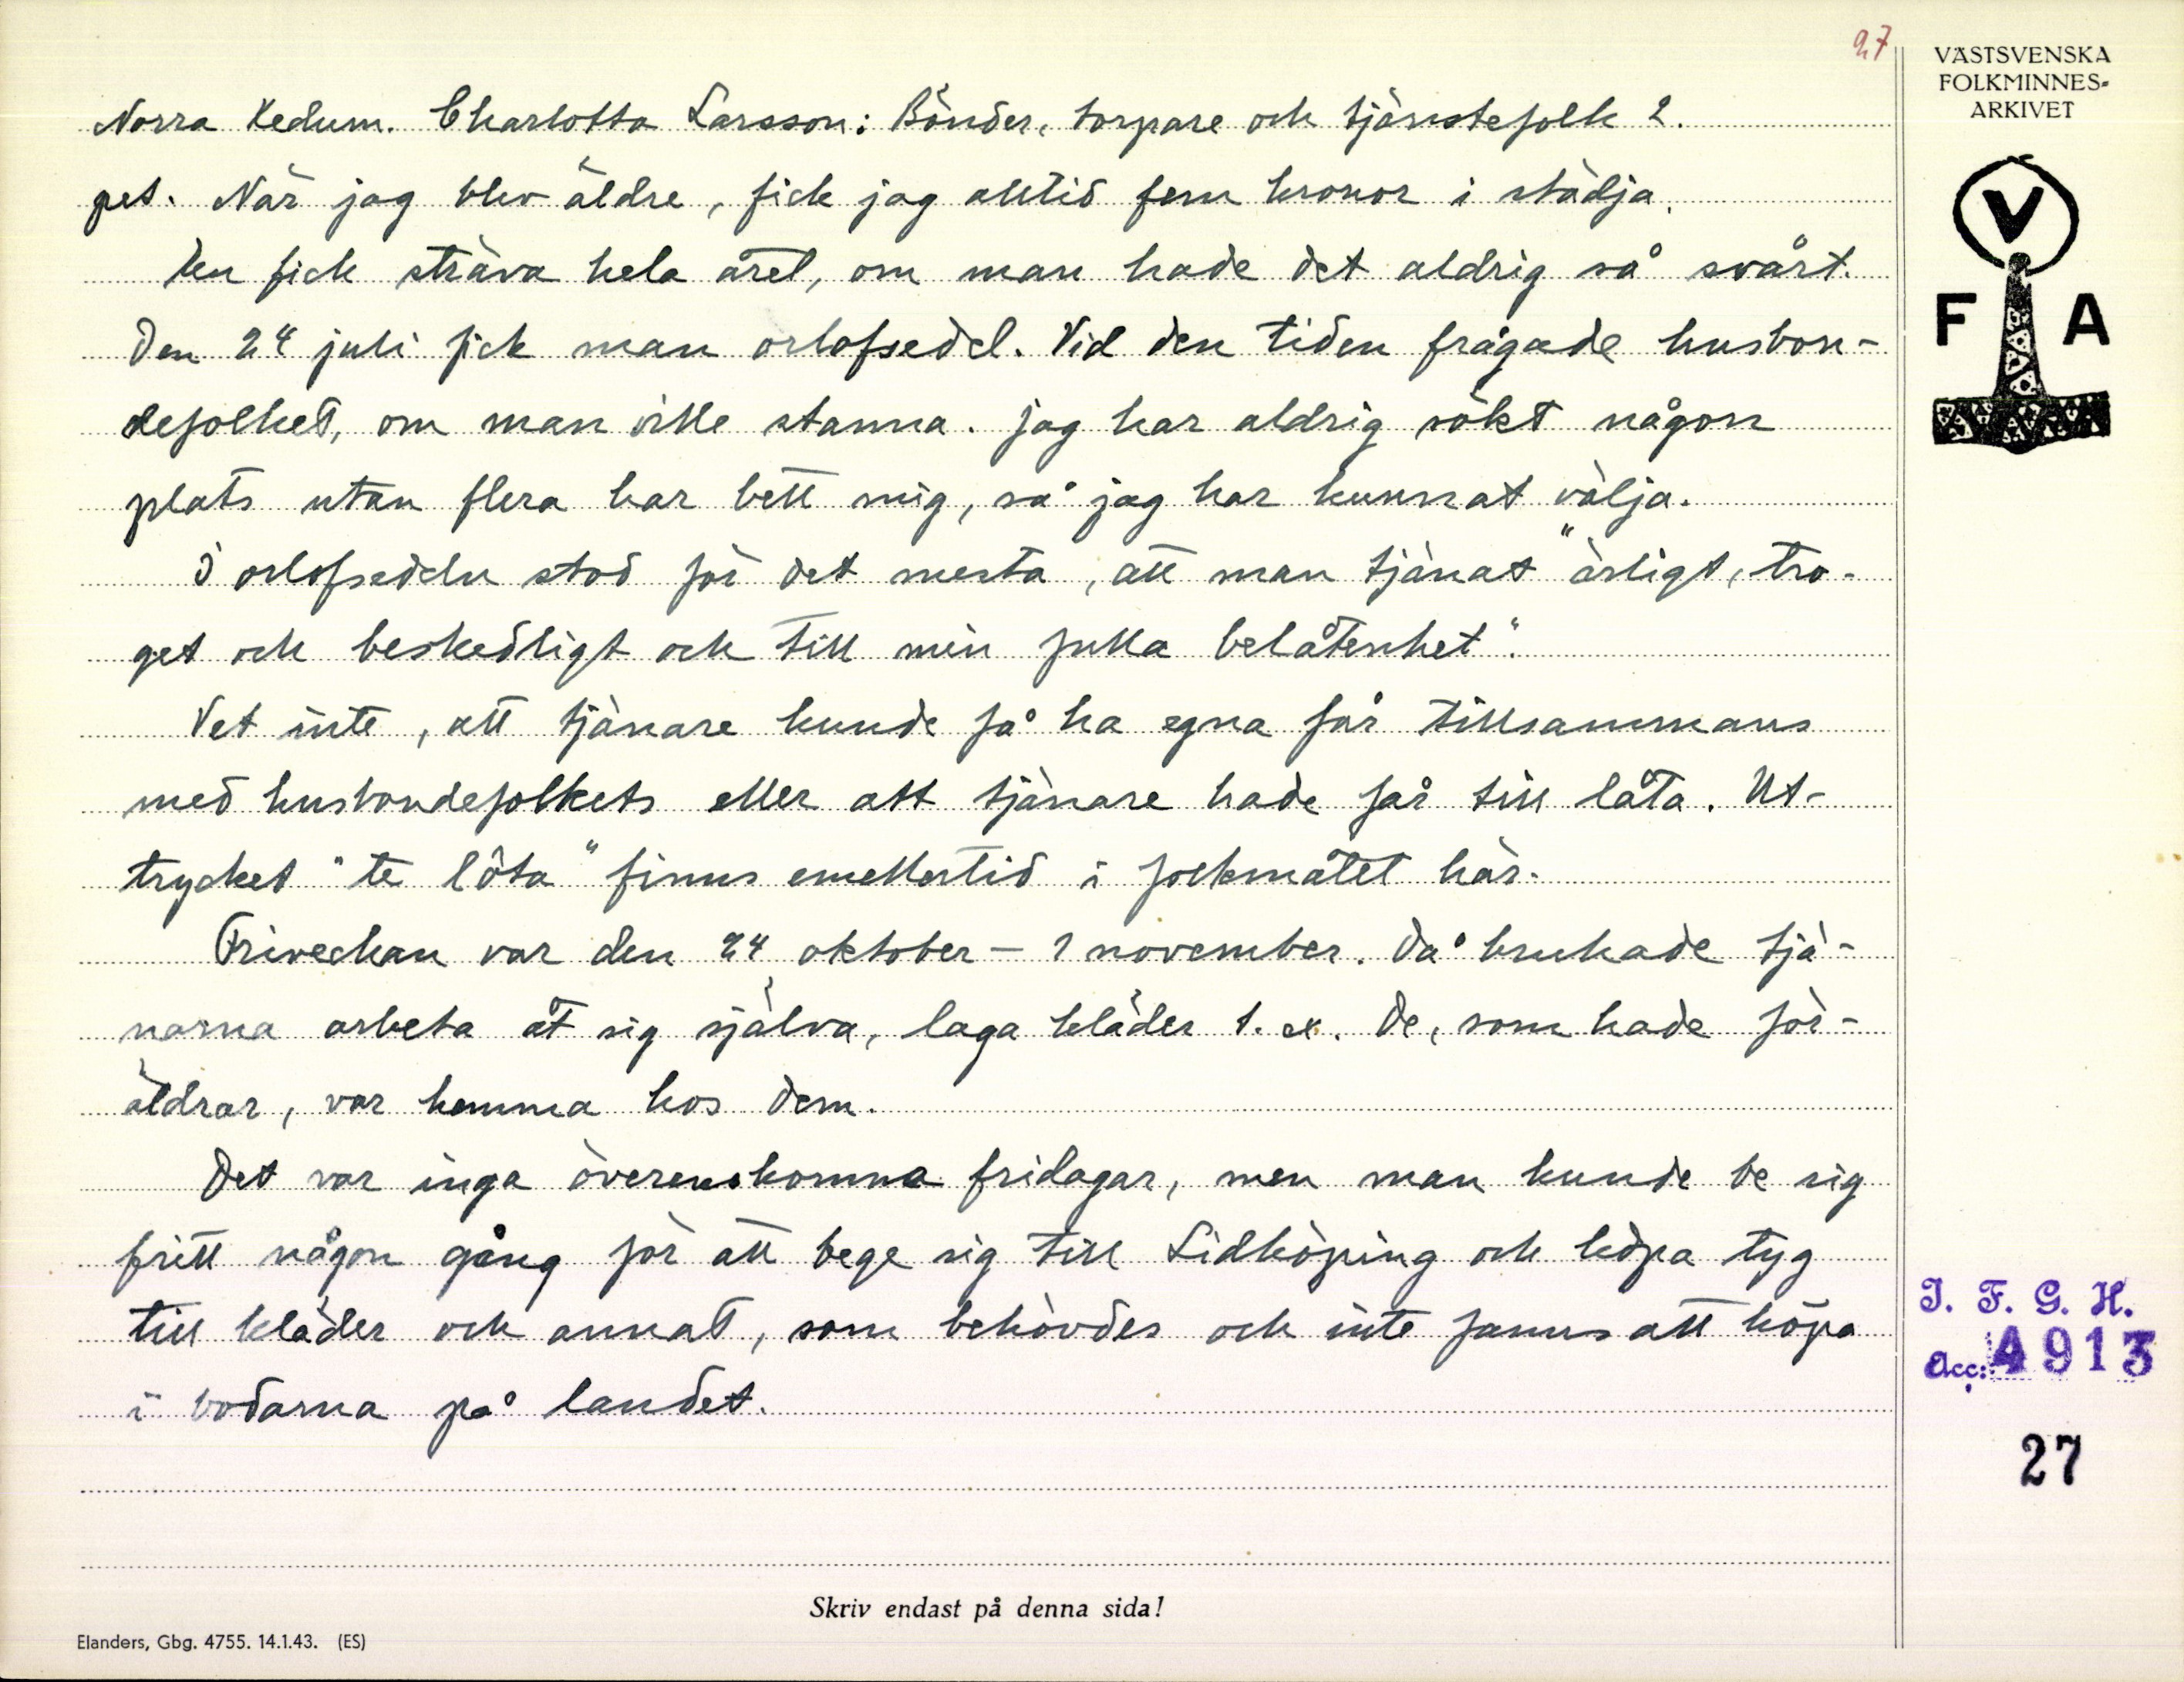 27
VÄSTSVENSKA
FOLKMINNES-
ARKIVET
V
F A
Norra Kedum. Charlotta Larsson: Bönder, torpare och tjänstefolk 2.
pet. När jag blev äldre, fick jag alltid fem kronor i städja.
En fick sträva hela året, om man hade det aldrig så svårt.
Den 24 juli fick man orlofsedel. Vid den tiden frågade husbon-
defolket, om man ville stanna. Jag har aldrig sökt någon
plats utan flera har bett mig, så jag har kunnat välja.
I orlofsedeln stod för det mesta, att man tjänat "ärligt, tro-
get och beskedligt och till min fulla belåtenhet".
Vet inte, att tjänare kunde få ha egna får tillsammans
med husbondefolkets eller att tjänare hade får till låta. Ut-
trycket "te lôta" finns emellertid i folkmålet här.
Friveckan var den 24 oktober – 1 november. Då brukade tjä-
narna arbeta åt sig själva, laga kläder t. ex. De, som hade för-
äldrar, var hemma hos dem.
Det var inga överenskomna fridagar, men man kunde be sig
fritt någon gång för att bege sig till Lidköping och köpa tyg
till kläder och annat, som behövdes och inte fanns att köpa
i bodarna på landet.
I. F. G. H.
Acc: 4913
27
Skriv endast på denna sida!
Elanders, Gbg. 4755. 14.1.43. (ES)